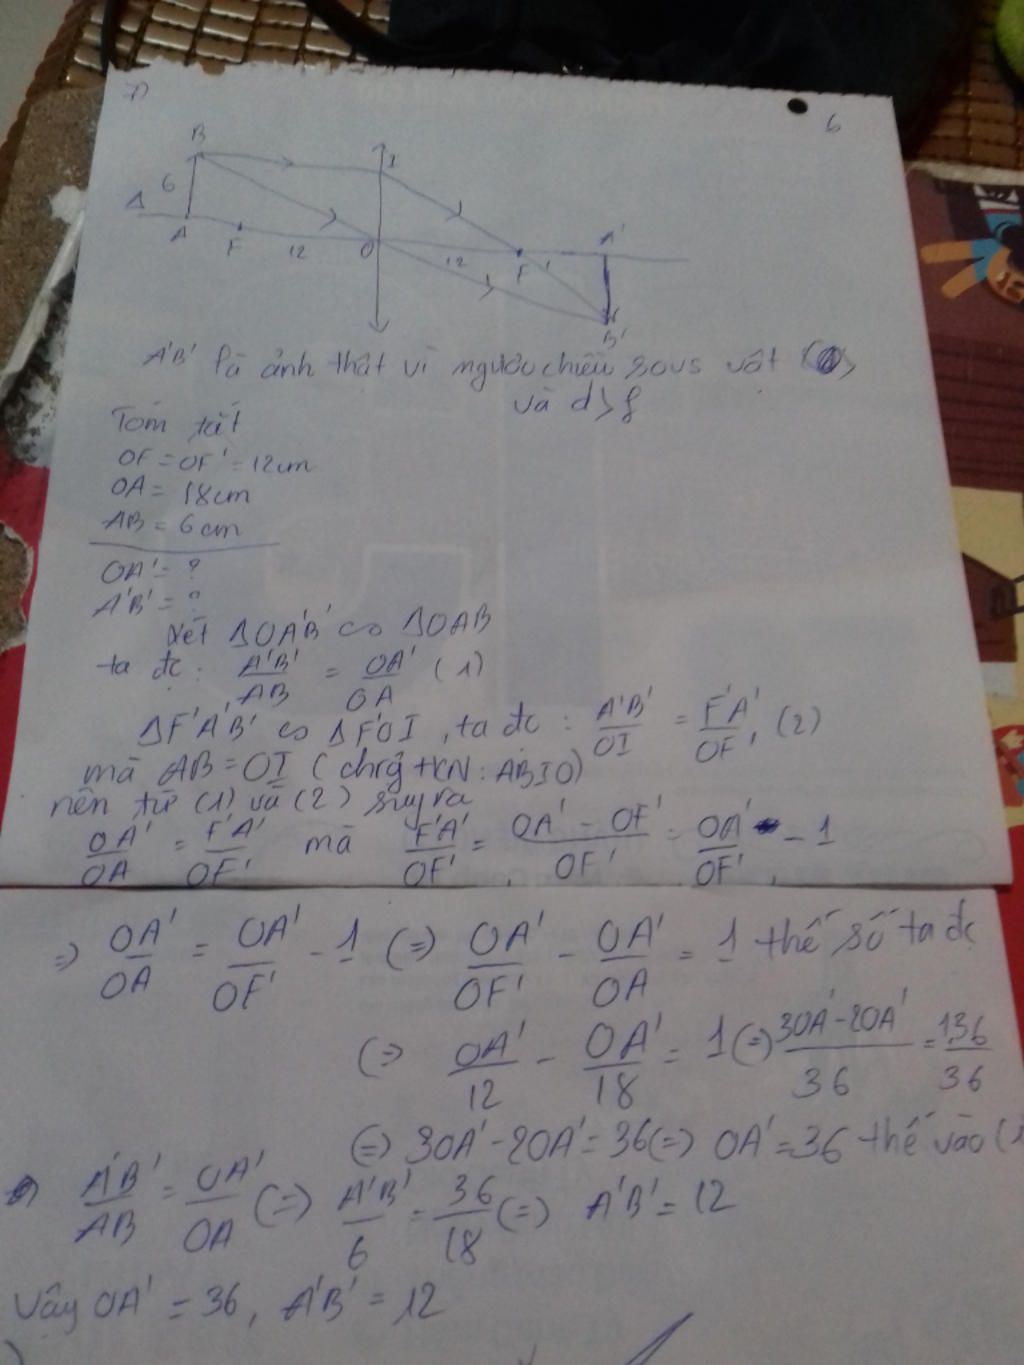 7)
6
B
I
6
Δ
A
F
12
O
12
F'
A'
B'
A'B' là ảnh thật vì ngược chiều vật
và d > f
Tóm tắt
OF = OF' = 12cm
OA = 18cm
AB = 6cm
OA' = ?
A'B' = ?
Xét ΔOA'B' ∽ ΔOAB
ta đc: A'B'/AB = OA'/OA (1)
ΔF'A'B' ∽ ΔF'OI, ta đc: A'B'/OI = F'A'/OF' (2)
mà AB = OI (HCN: ABIO)
nên từ (1) và (2) suy ra
OA'/OA = F'A'/OF' mà F'A'/OF' = OA' - OF'/OF' = OA'/OF' - 1
=> OA'/OA = OA'/OF' - 1 (=) OA'/OF' - OA'/OA = 1 thế số ta đc
(=> OA'/12 - OA'/18 = 1 (=) 3OA' - 2OA'/36 = 1.36/36
(=) 3OA' - 2OA' = 36 (=) OA' = 36 thế vào (1
A'B'/AB = OA'/OA (=) A'B'/6 = 36/18 (=) A'B' = 12
Vậy OA' = 36, A'B' = 12